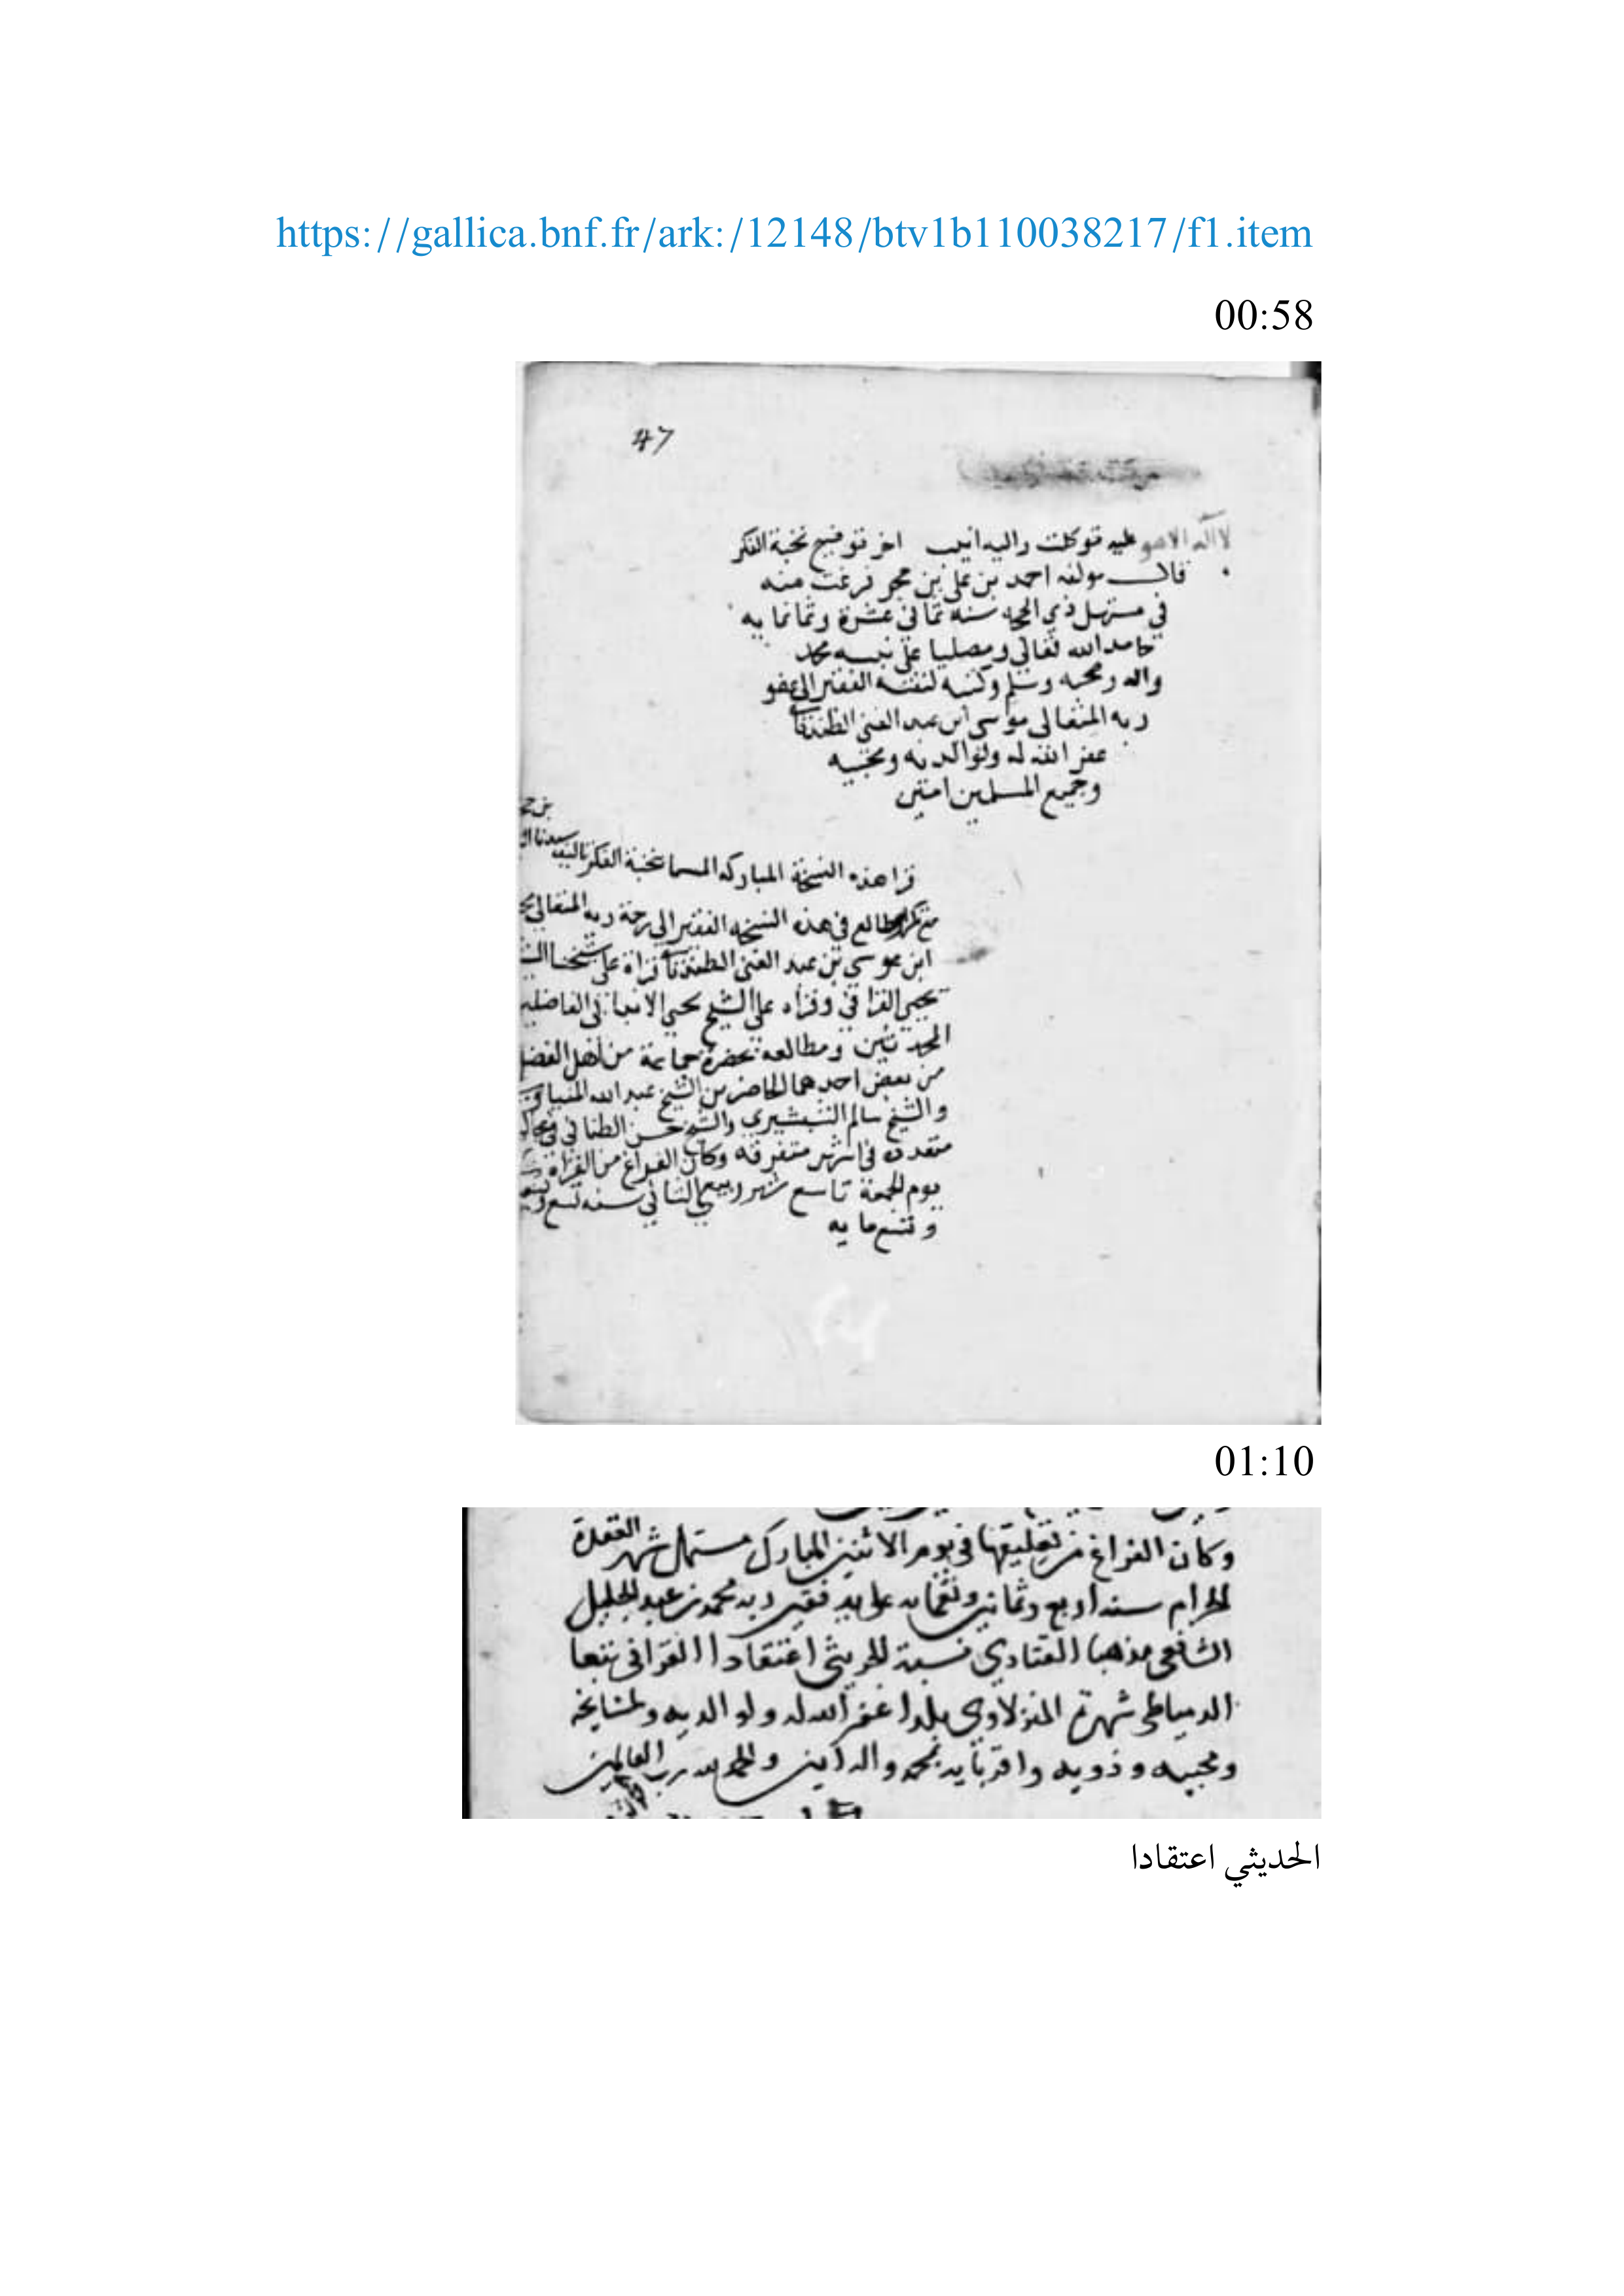 https://gallica.bnf.fr/ark:/12148/btv1b110038217/f1.item
00:58
47
لا اله الا هو عليه توكلت واليه انيب اخر توضيح نخبة الفكر
قال مولفه احمد بن علي بن حجر فرغت منه
في مستهل ذي الحجه سنه ثماني عشرة وثمانمايه
حامدا لله تعالى ومصليا على نبيه محمد
واله وصحبه وسلم وكتبه لنفسه الفقير الى عفو
ربه المتعالى موسى ابن عبد الغنى
غفر الله له ولوالديه ومحبيه
وجميع المسلمين امين
قرا هذه النسخة المباركه المسما نخبة الفكر تاليف سيدنا
في هذه النسخه الفقير الى رحمة ربه المتعالى
ابن موسى بن عبد الغنى قراة على شيخنا
يحيى القرافي وقراه على الشيخ
المحدثين ومطالعه بحضرة جماعة من اهل الفضل
من بعض احدهما الشيخ عبد الله
والشيخ سالم والشيخ حسن
متعدده في اشهر متفرقه وكان الفراغ من القراة
يوم الجمعة تاسع شهر ربيع الثاني سنه تسع
وتسعمايه
01:10
وكان الفراغ من تعليقها في يوم الاثنين المبارك مستهل شهر القعدة
الحرام سنه اربع وثمانين على يد فقير ربه محمد بن عبد الجليل
الشافعى مذهبا نسبة الحديثى اعتقادا القرافى تبعا
الدمياطى شهرة المنزلاوى بلدا غفر الله له ولوالديه ولمشايخه
ومحبيه وذويه واقربايه بمحمد واله امين والحمد لله رب العالمين
الحديثي اعتقادا